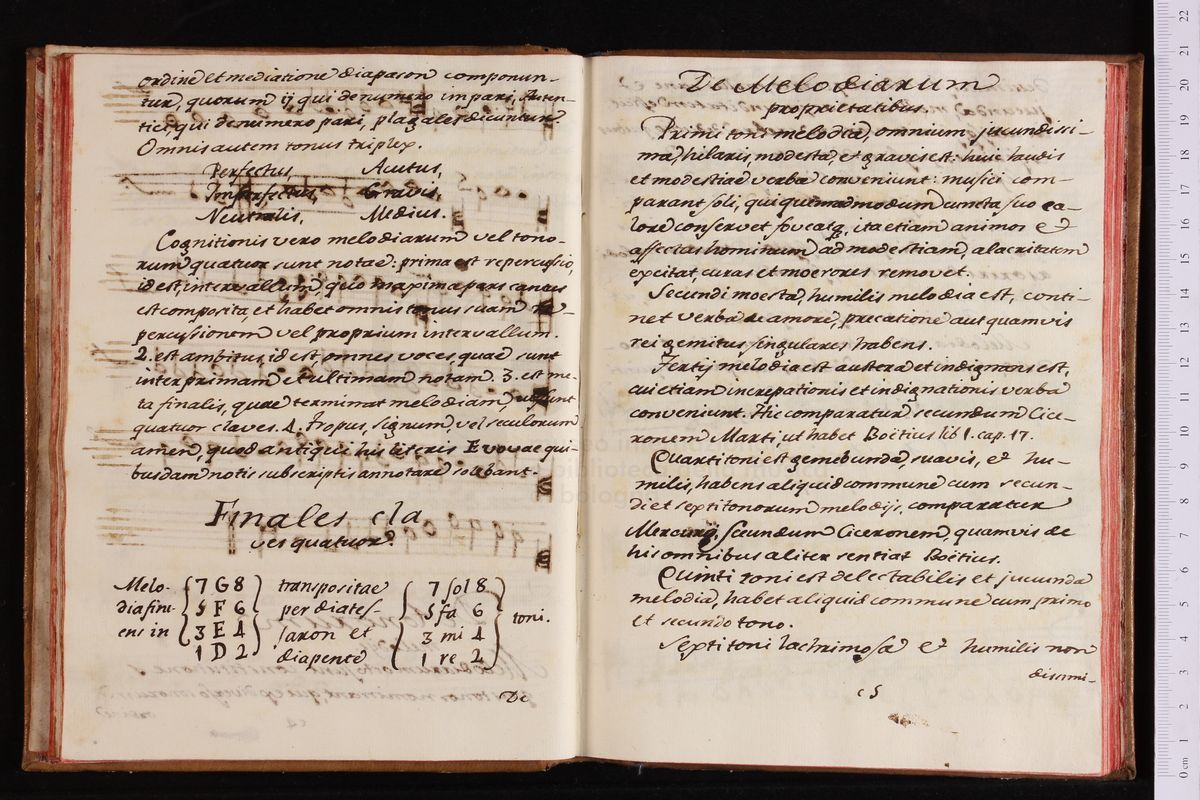 ordine et mediatione diapason componun-
tur, quorum ij qui de numero impari, Auten-
tici, qui de numero pari, plagales dicuntur.
Omnis autem tonus triplex.
Perfectus, Acutus,
Imperfectus, Gravis,
Neutralis, Medius.
Cognitionis vero melodiarum vel tono-
rum quatuor sunt notae: prima est repercussio,
id est, intervallum, quo maxima pars cantus
est composita, et habet omnis tonus suam re-
percussionem vel proprium intervallum.
2. est ambitus, id est, omnes voces, quae sunt
inter primam et ultimam notam. 3. est me-
ta finalis, quae terminat melodiam, ut sunt
quatuor claves. 4. tropus, signum, vel seculorum
amen, quod antiqui his literis Evovae qui-
busdam notis subscriptis annotare solebant.
Finales cla
ves quatuor.
Melo- 7 G 8 transpositae 7 sol 8
dia fini- 5 F 6 per diates- 5 fa 6 toni.
ens in 3 E 4 saron et 3 mi 4
1 D 2 diapente 1 re 2
De
De Melodiarum
proprietatibus.
Primi toni melodia, omnium jucundissi-
ma, hilaris, modesta, et gravis est: huic laudis
et modestiae verba conveniunt: musici com-
parant soli, qui quemadmodum cuncta suo ca-
lore conservet foveatq, ita etiam animos et
affectus hominum ad modestiam, alacritatem
excitat, curas et moerores removet.
Secundi moesta, humilis melodia est, conti-
net verba de amore, precatione aut quamvis
rei gemitus singulares habens.
Tertij melodia est austera et indignans est,
cui etiam increpationis et indignationis verba
conveniunt. Hic comparatur secundum Cice-
ronem Marti, ut habet Boëtius lib 1. cap. 17.
Quarti toni est gemebunda, suavis, et hu-
milis, habens aliquid commune cum secun-
di et septi tonorum melodijs, comparatur
Mercurij, secundum Ciceronem, quamvis de
his omnibus aliter sentiat Boëtius.
Quinti toni est delectabilis et jucunda
melodia, habet aliquid commune cum primo
et secundo tono.
Septi toni lachrimosa et humilis non
dissimi-
c5